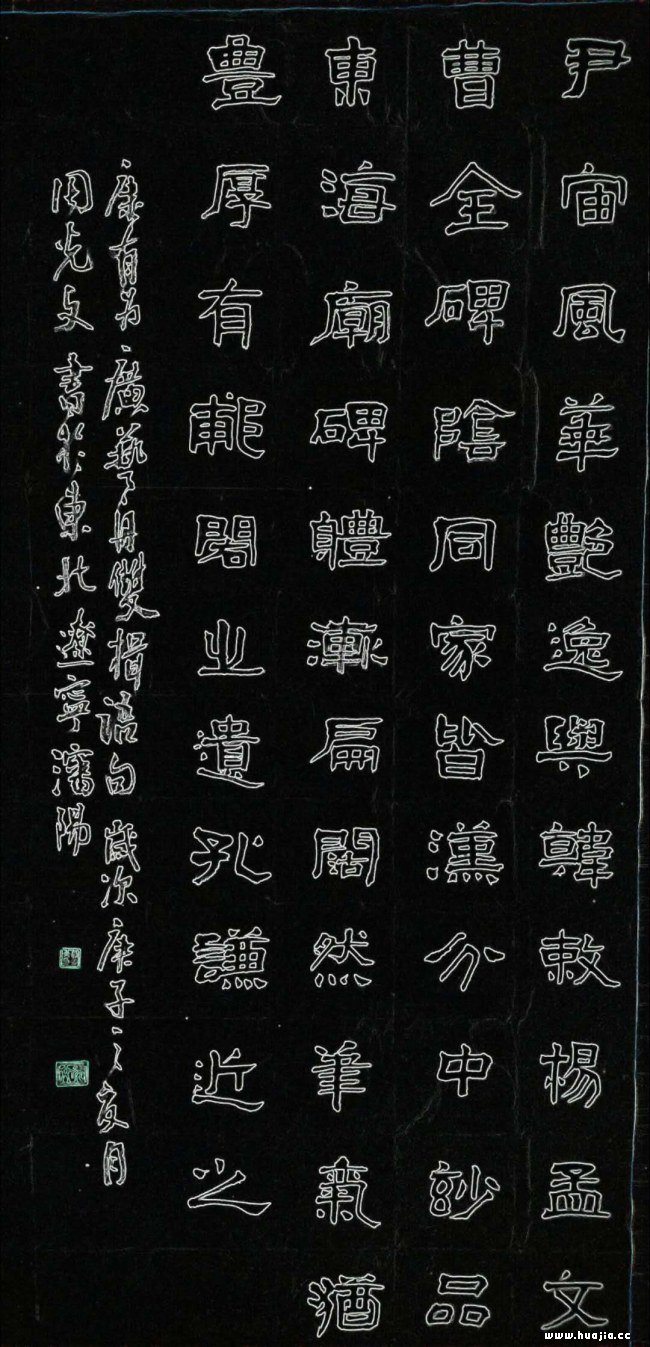 尹宙風華艷逸與韓敕楊孟文
曹全碑陰同家皆漢分中妙品
東海廟碑體漸扁闊然筆氣猶
豐厚有郙閣之遺孔謙近之
康有为廣藝舟雙楫語句 歲次庚子之夏月
書於東北遼寧瀋陽
www.huajia.cc